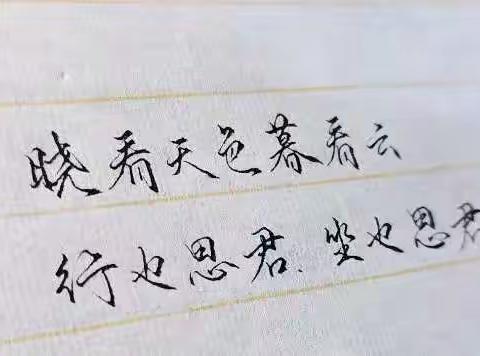 晓看天色暮看云
行也思君.坐也思君